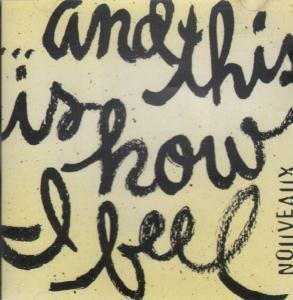 ...and this
is how
I feel
NOUVEAUX